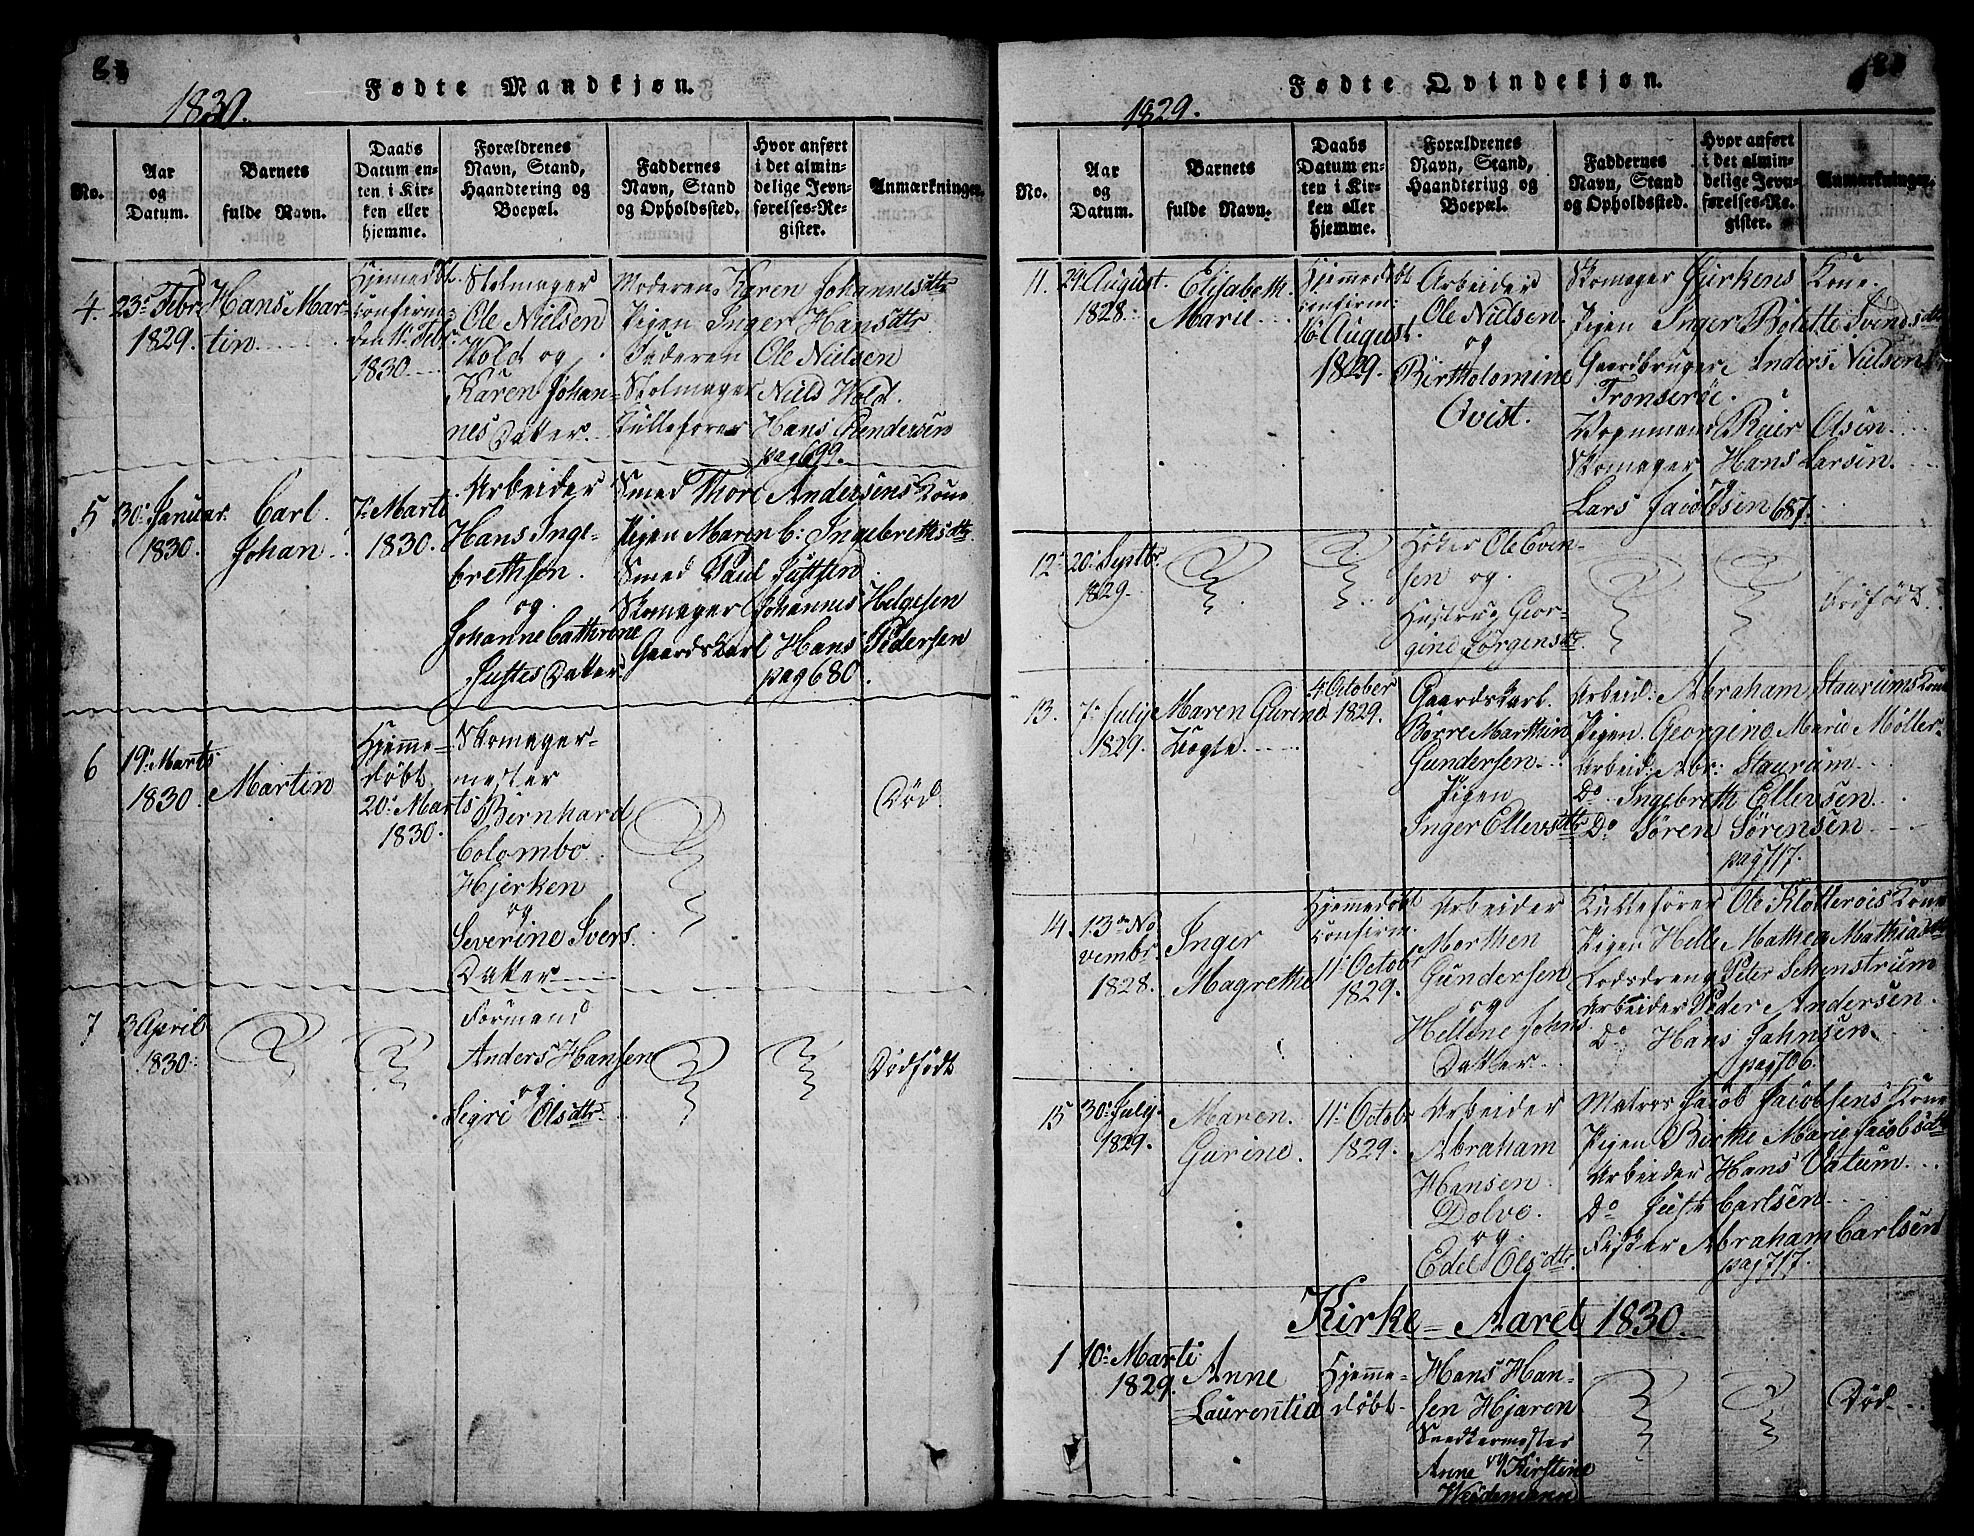 Fødte Mandkjøn.
1830.
No.
Aar
og
Datum.
Barnets
fulde Navn.
Daabs
Datum en-
ten i Kir-
ken eller
hjemme.
Forældrenes
Navn, Stand,
Haandtering og
Boepæl.
Faddernes
Navn, Stand
og Opholdssted.
Hvor anført
i det almin-
delige Jevn-
førelses-Re-
gister.
Anmærkninger.
4. 23de Febr
1829.
Hans Mar-
tin
Hjemedøbt
confirm:
den 14 Febr
1830
Stolmager
Ole Nielsen
Wold og
Karen Johan-
nes Datter
Moderen Karen Johannesdtr
Pigen Inger Hansdtr
Faderen Ole Nielsen
Stolmager Niels Wold.
Kullefører Hans Gundersen
pag 699.
5 30te Januar.
1830.
Carl
Johan
7de Marti
1830.
Arbeider
Hans Inge-
brethsen.
og
Johanne Cathrine
Justes Datter
Smed Thore Andersens Kone
Pigen Maren C: Ingebrethsdtr
Smed Paul Justsen
Skomager Johannes Helgesen
Gaardskarl Hans Pedersen
pag 680.
6 19de Marts
1830.
Martin
Hjemme-
døbt
20de Marts
1830.
Skomager-
mester
Bernhard
Colombo
Hjerken
og
Severine Ivers
Datter
Død
7 3 April
1830.
Formand
Anders Hansen
og
Sigri Olsdtr
Dødfødt
Fødte Qvindekjøn.
1829.
No.
Aar
og
Datum.
Barnets
fulde Navn.
Daabs
Datum en-
ten i Kir-
ken eller
hjemme.
Forældrenes
Navn, Stand,
Haandtering og
Boepæl.
Faddernes
Navn, Stand
og Opholdssted.
Hvor anført
i det almin-
delige Jevn-
førelses-Re-
gister.
Anmærkninger.
11. 29 August.
1828.
Elisabeth
Marie
Hjemmedøbt
confirm:
16 August.
1829.
Arbeider
Ole Nielsen
og
Bertholomine
Qvist.
Skomager Hjerkens Kone.
Pigen Inger Bolette Svendsdtr
Gaardbruger Anders Nielsen
Tronserøe.
Vognmand Reier Olsen
Skomager Hans Larsen.
og
Lars Jacobsen 687.
12 20 Septbr.
1829.
Høker Ole Even-
sen og
Hustrue Geor-
gine Jørgensdtr
Dødfødt.
13. 7de July
1829.
Maren Gurine
Bogte
4 October
1829.
Gaardskarl.
Børre Marthin
Gundersen
Pigen
Inger Ellevsdtr
Arbeid: Abraham Staurums Kone
Pigen Georgine Marie Møller
Arbeid: Abr: Staurum
Do Ingebreth Ellevsen
Do Søren Sørensen
pag 717.
14. 13de No
vembr
1828.
Inger
Magrethe
Hjemedøbt
confirm.
11te Octobr
1829.
Arbeider
Morthen
Gundersen
og
Hellene Johns
Datter
Kullefører Ole Kløtterøes Kone
Pigen Helle Mathea Mathiasdtr
Lodsdreng Peter Schenstrüm
Arbeider Peder Andersen.
Do Hans Jahnsen
pag 706.
15 30te July
1829.
Maren
Gurine.
11te Octobr
1829.
Arbeider
Abraham
Hansen
Dolvo.
og
Edel Olsdtr.
Matros Jacob Jacobsens Kone
Pigen Birthe Marie Jacobsdtr
Arbeider Hans Vatum
Do Just Carlsen
Fisker Abraham Carlsen
pag 717.
Kirke-Aaret 1830.
1 10de Marti
1829.
Anne
Laurentia
Hjemme-
døbt.
Hans Han-
sen Hjaren
Snedkermester
og
Anne Kirstine
Weidemann
Død.